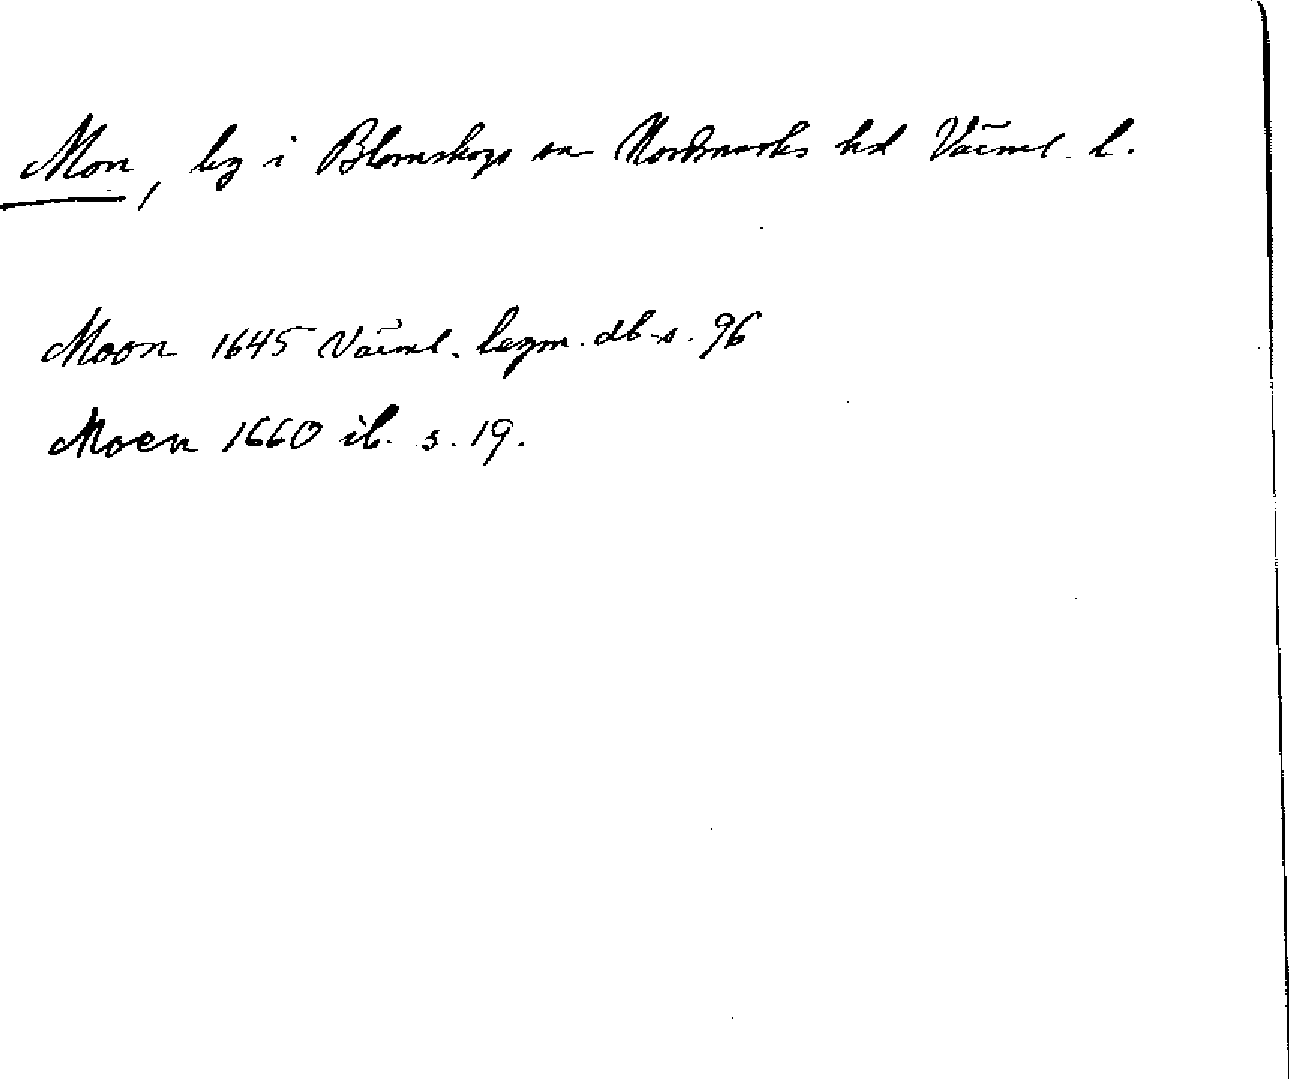 Mon, by i Blomskogs sn Nordmarks hd Värml. l.
Moon 1645 Värml. lagm. db. s. 96
Moen 1660 ib. s. 19.